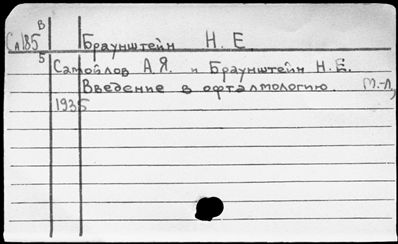 В
Са185 Браунштейн Н. Е.
5
Самойлов А. Я. и Браунштейн Н. Е.
Введение в офталмологию. М.-Л,
1935